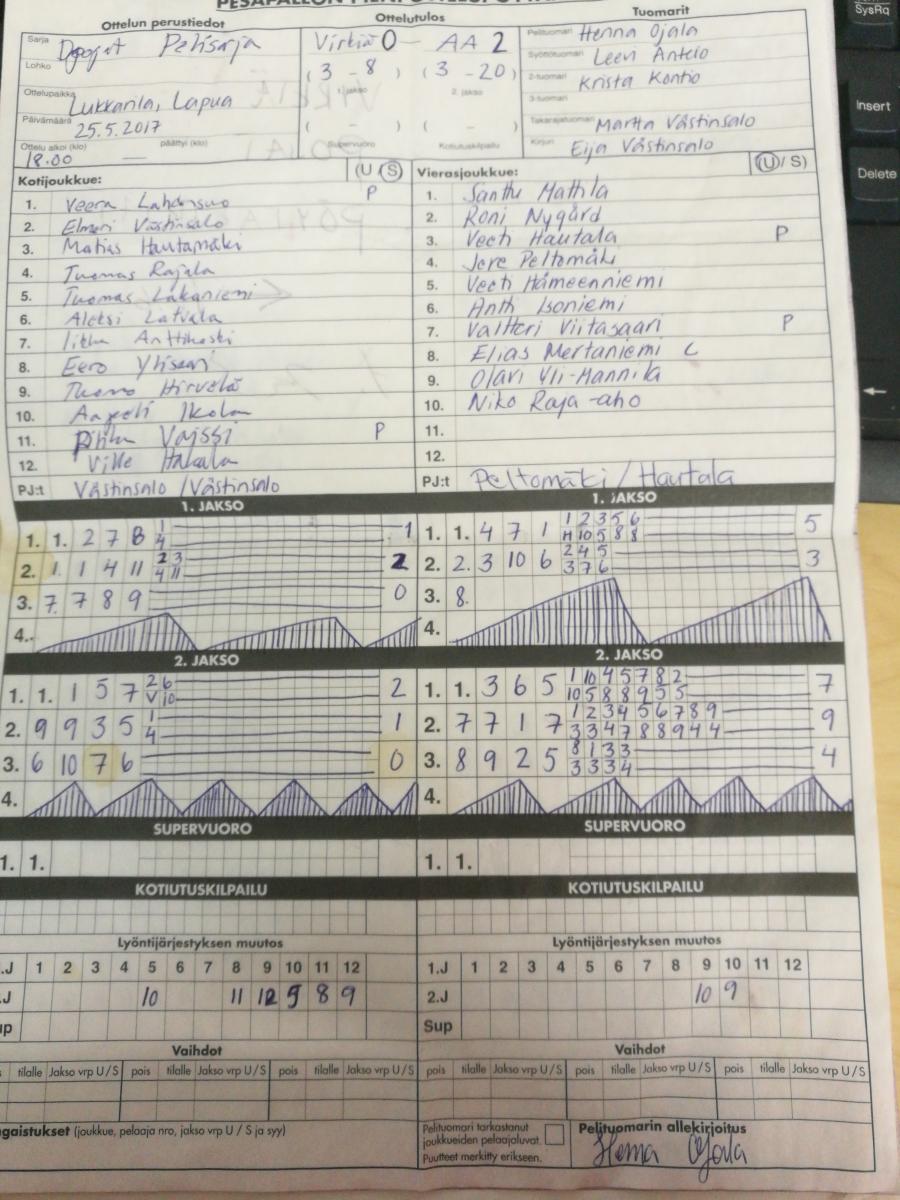 Ottelun perustiedot
Ottelutulos
Tuomarit
Sarja D pojat Pelisarja
Lohko
Ottelupaikka Lukkarila, Lapua
Päivämäärä 25.5.2017
Ottelu alkoi (klo) päättyi (klo)
18.00 —
Virkiä 0 - AA 2
( 3 - 8 ) ( 3 - 20 )
1. jakso 2. jakso
( - ) ( - )
Supervuoro Kotiutuskilpailu
Pelituomari Henna Ojala
Syöttötuomari Leevi Anteio
2-tuomari Krista Kontio
3-tuomari
Takarajatuomari Martta Västinsalo
Kirjuri Eija Västinsalo
Kotijoukkue: (U/S)
1. Veera Lahdensuo P
2. Elmeri Västinsalo
3. Matias Hautamäki
4. Tuomas Rajala
5. Tuomas Lakaniemi
6. Aleksi Latvala
7. Iikka Anttikoski
8. Eero Ylisaari
9. Tuomo Hirvelä
10. Aapeli Ikola
11. Pihla Vaissi P
12. Ville Hakala
PJ:t Västinsalo / Västinsalo
Vierasjoukkue: (U/S)
1. Santtu Mattila
2. Roni Nygård
3. Veeti Hautala P
4. Jere Peltomäki
5. Veeti Hämeenniemi
6. Antti Isoniemi
7. Valtteri Viitasaari P
8. Elias Mertaniemi C
9. Olavi Yli-Mannila
10. Niko Raja-aho
11.
12.
PJ:t Peltomäki / Hautala
1. JAKSO
1. 1. 2 7 8 1 1
4
2. 1. 1 4 11 2 3 2
4 11
3. 7. 7 8 9 0
4.
1. JAKSO
1. 1. 4 7 1 1 2 3 5 6 5
4 10 5 8 8
2. 2. 3 10 6 2 4 5 3
3 7 6
3. 8.
4.
2. JAKSO
1. 1. 1 5 7 2 6 2
V 10
2. 9 9 3 5 1 1
4
3. 6 10 7 6 0
4.
2. JAKSO
1. 1. 3 6 5 1 10 4 5 7 8 2 7
10 5 8 8 9 5 5
2. 7 7 1 7 1 2 3 4 5 6 7 8 9 9
3 3 4 7 8 8 9 4 4
3. 8 9 2 5 8 1 3 3 4
3 3 3 4
4.
SUPERVUORO
1. 1.
SUPERVUORO
1. 1.
KOTIUTUSKILPAILU
KOTIUTUSKILPAILU
Lyöntijärjestyksen muutos
.J 1 2 3 4 5 6 7 8 9 10 11 12
.J 10 11 12 5 8 9
up
Lyöntijärjestyksen muutos
1.J 1 2 3 4 5 6 7 8 9 10 11 12
2.J 10 9
Sup
Vaihdot
s tilalle Jakso vrp U/S pois tilalle Jakso vrp U/S pois tilalle Jakso vrp U/S
Vaihdot
pois tilalle Jakso vrp U/S pois tilalle Jakso vrp U/S pois tilalle Jakso vrp U/S
ngaistukset (joukkue, pelaaja nro, jakso vrp U / S ja syy)
Pelituomari tarkastanut
joukkueiden pelaajaluvat.
Puutteet merkitty erikseen.
Pelituomarin allekirjoitus
Henna Ojala
SysRq
Insert
Delete